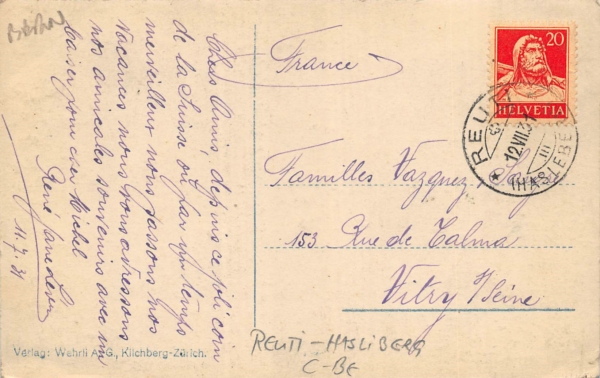 BERN
Chers Amis, depuis ce joli coin
de la Suisse où par un temps
merveilleux nous passons nos
vacances nous vous adressons
nos amicales souvenirs avec un
baiser pour cher Michel
René
11.7.31
France
20
HELVETIA
REUTI
12.VII.31
(HASLEBERG)
Familles Vazquez
153 Rue de Talma
Vitry s/Seine
REUTI - HASLIBERG
C-BE
Verlag: Wehrli A.-G., Kilchberg-Zürich.